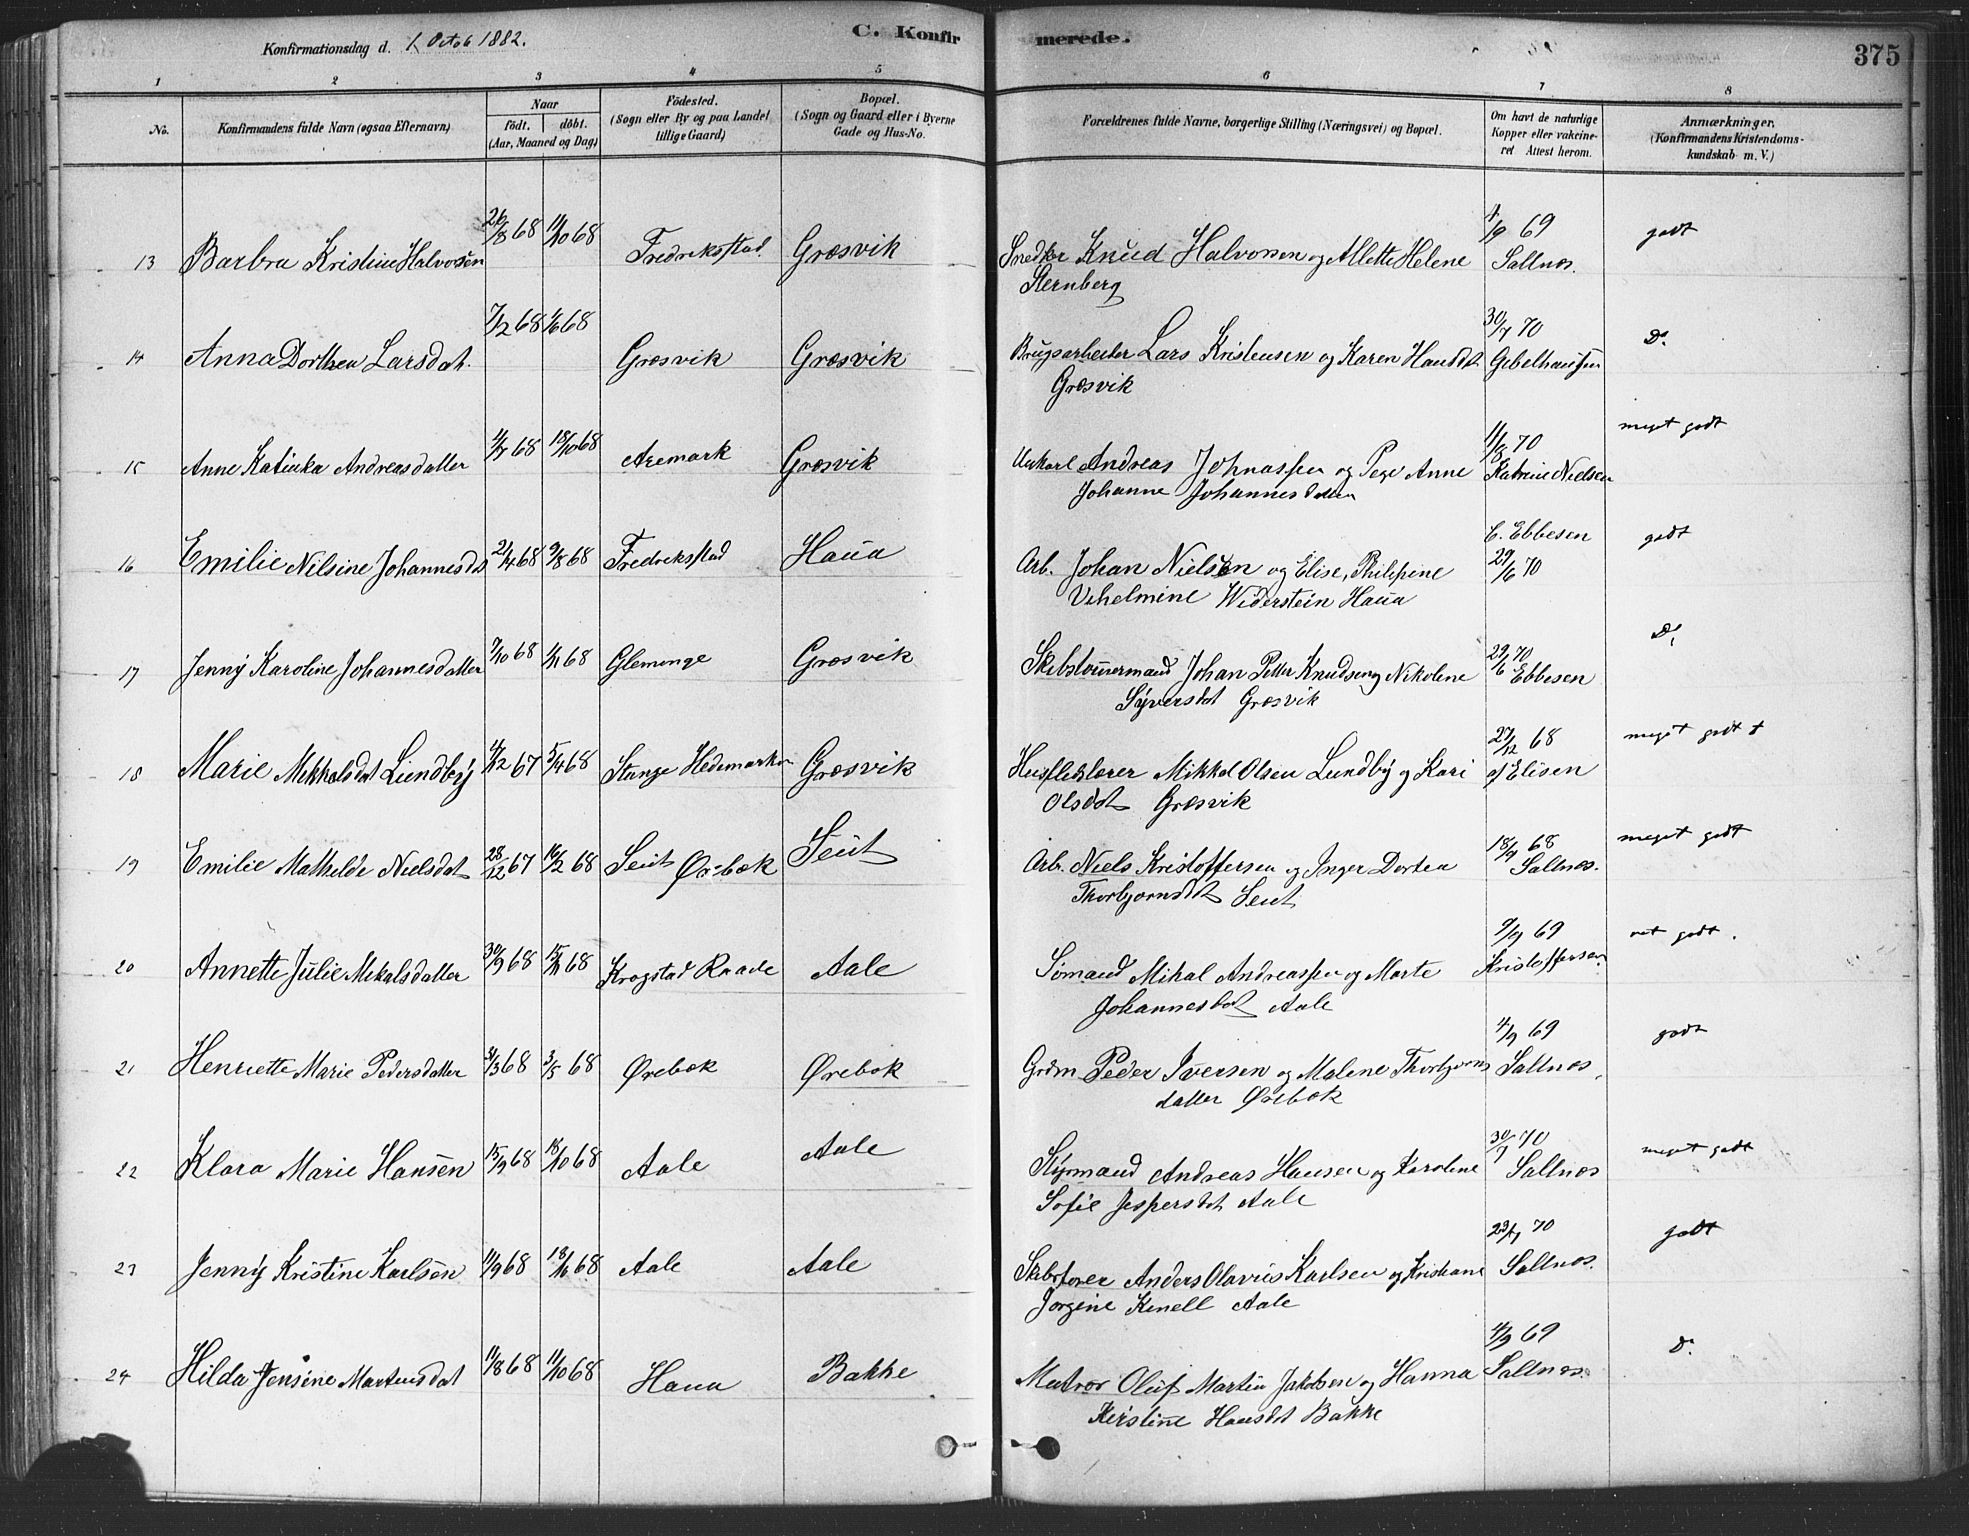 Konfirmationsdag d. 1. Octob 1882.
C. Konfirmerede.
375
1 2 3 4 5 6 7 8
No.
Konfirmandens fulde Navn (ogsaa Efternavn)
Naar
födt. döbt.
(Aar, Maaned og Dag)
Födested.
(Sogn eller By og paa Landet tillige Gaard)
Bopæl.
(Sogn og Gaard eller i Byerne Gade og Hus-No.
Forældrenes fulde Navne, borgerlige Stilling (Næringsvei) og Bopæl.
Om havt de naturlige Kopper eller vakcineret Attest herom.
Anmærkninger.
(Konfirmandens Kristendomskundskab m. V.)
13 Barbra Kristine Halvorsen 26/8 68 11/10 68 Fredriksstad. Græsvik Snedker Knud Halvorsen og Alette Helene 1/9 69 Saltnæs. godt
Sternberg
14 Anna Dorthea Larsdat. 7/2 68 1/6 68 Græsvik Græsvik Brugsarbeider Lars Kristensen og Karen Hansdt 30/7 70 Gebelhausen Do
Græsvik
15 Anne Katinka Andreasdatter 11/7 68 18/10 68 Aremark Græsvik Andreas Johnassen og Pige Anne 11/8 70 Katrine Nielsen meget godt
Johanne Johannesdatter
16 Emilie Nilsine Johannesdt 21/4 68 9/8 68 Fredriksstad Haua Arb. Johan Nielsen og Elise, Philipine C. Ebbesen 29/6 70 godt
Vilhelmine Widerstein Haua
17 Jenny Karoline Johannesdatter 7/10 68 1/11 68 Glemminge Græsvik Skibstømmermand Johan Petter Knudsen og Nikolene 29/6 70 Ebbesen Do
Syversdt Græsvik
18 Marie Mikkalsdat Lundby 4/12 67 5/4 68 Stange Hedemarken Græsvik Husflidslærer Mikkel Olsen Lundby og Kari 27/12 68 af Elisen meget godt +
Olsdat Græsvik
19 Emilie Mathilde Nielsdat 28/12 67 16/2 68 Seut Ørebæk Seut Arb. Niels Kristoffersen og Inger Dortea 18/9 68 Saltnæs. meget godt
Thorbjørnsdt Seut
20 Annette Julie Mikalsdatter 30/9 68 15/11 68 Krogstad Raade Aale Sømand Mikal Andreassen og Marte 9/9 69 Kristoffersen ret godt.
Johannesdat Aale
21 Henriette Marie Pedersdatter 31/3 68 3/5 68 Ørebæk Ørebæk Grdm Peder Iversen og Malene Thorbjørns 4/9 69 Saltnæs, godt
datter Ørebæk
22 Klara Marie Hansen 15/9 68 18/10 68 Aale Aale Styrmand Andreas Hansen og Karoline 30/7 70 Saltnæs meget godt
Sofie Jespersdat Aale
23 Jenny Kristine Karlsen 11/9 68 18/10 68 Aale Aale Skibsfører Anders Olavus Karlsen og Kristiane 23/7 70 Saltnæs. godt
Jørgine Kinell Aale
24 Hilda Jensine Martinsdat 11/8 68 11/10 68 Haua Bakke Matros Oluf Martin Jakobsen og Hanna 4/9 69 Saltnæs. Do
Kirstine Hansdat Bakke